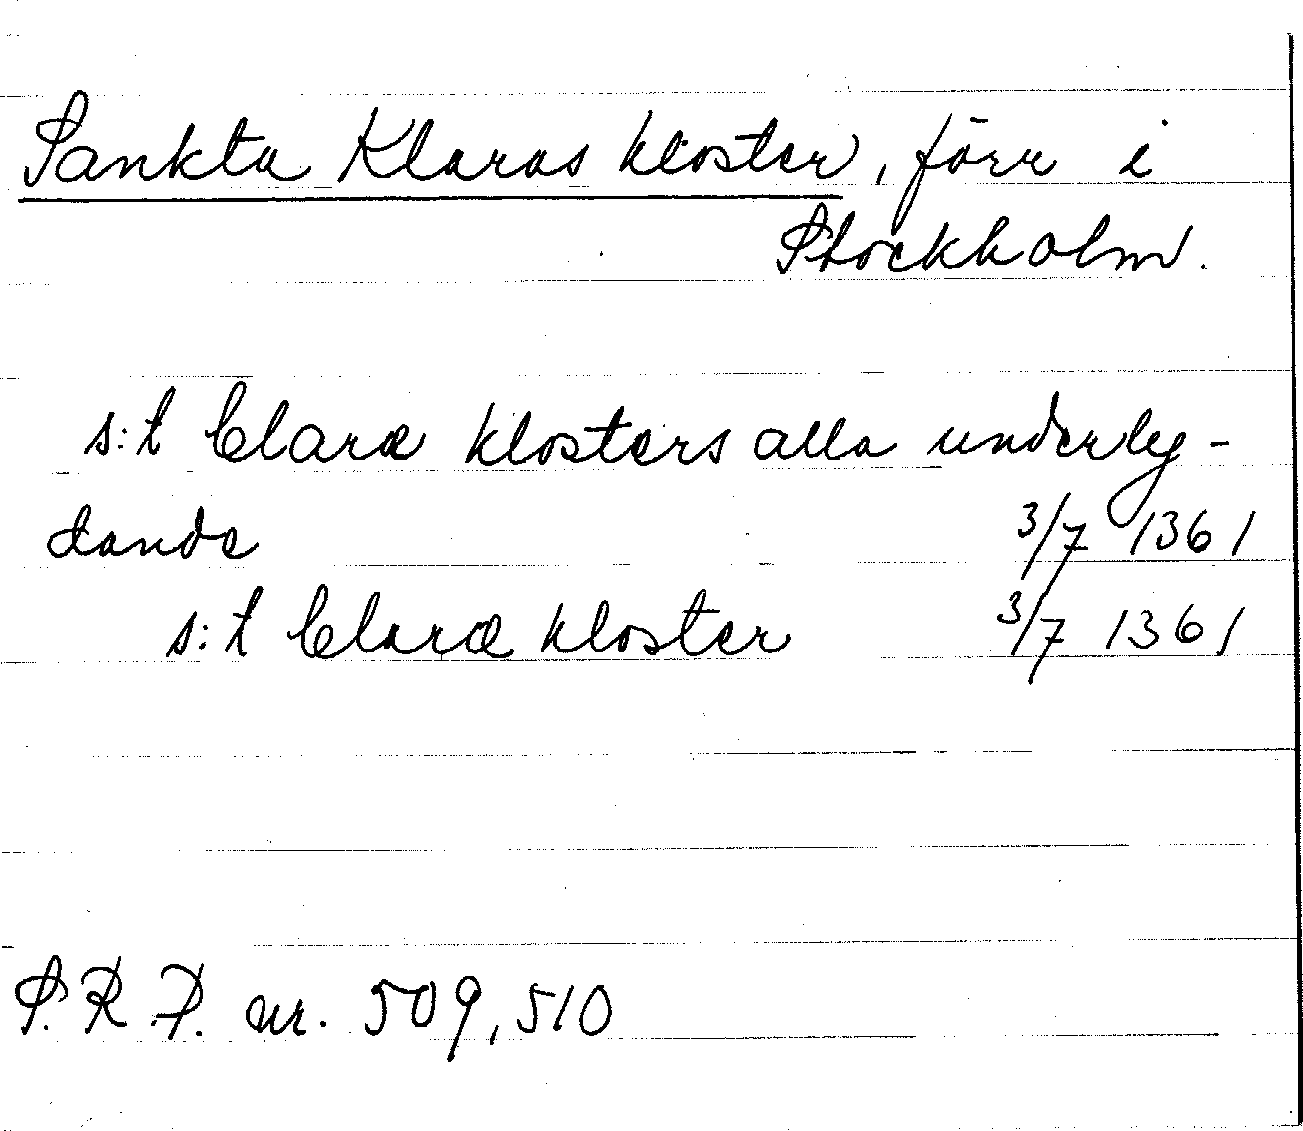 Sankta Klaras kloster, förr i
Stockholm.
s:t Claræ klosters alla underlig-
dande 3/7 1361
s:t Claræ kloster 3/7 1361
S.R.P. nr. 509, 510